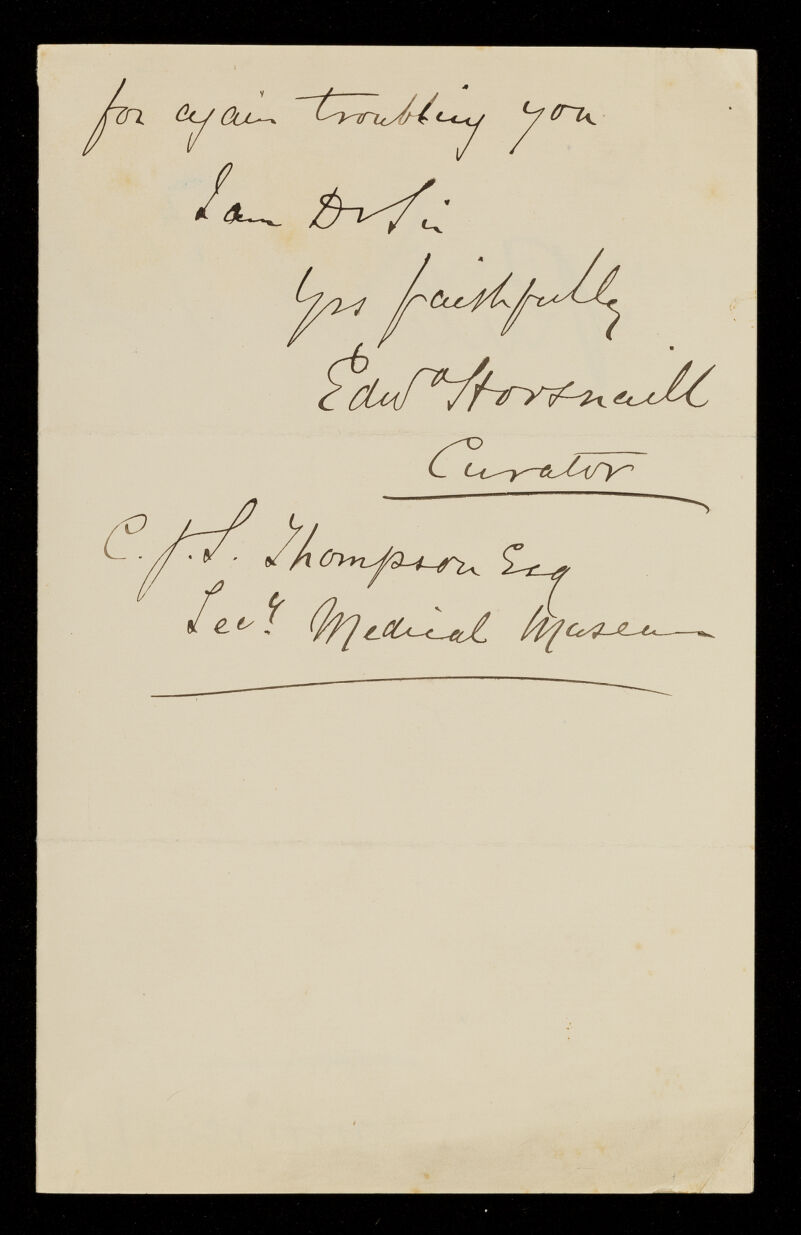 for again troubling you
I am Dr Sir
Yrs faithfully
Edwd Horsnaill
Curator
C. J. S. Thompson Esq
Secy. Medical Museum